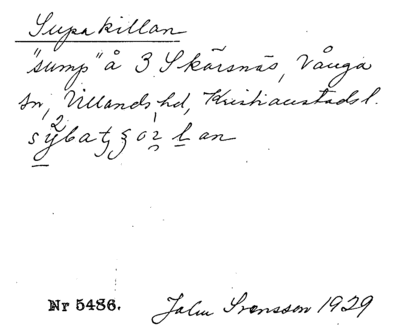 Supakillan
"sump" å 3 Skärsnäs, Vånga
sn, Villands hd, Kristianstads l.
Nr 5486. John Svensson 1929